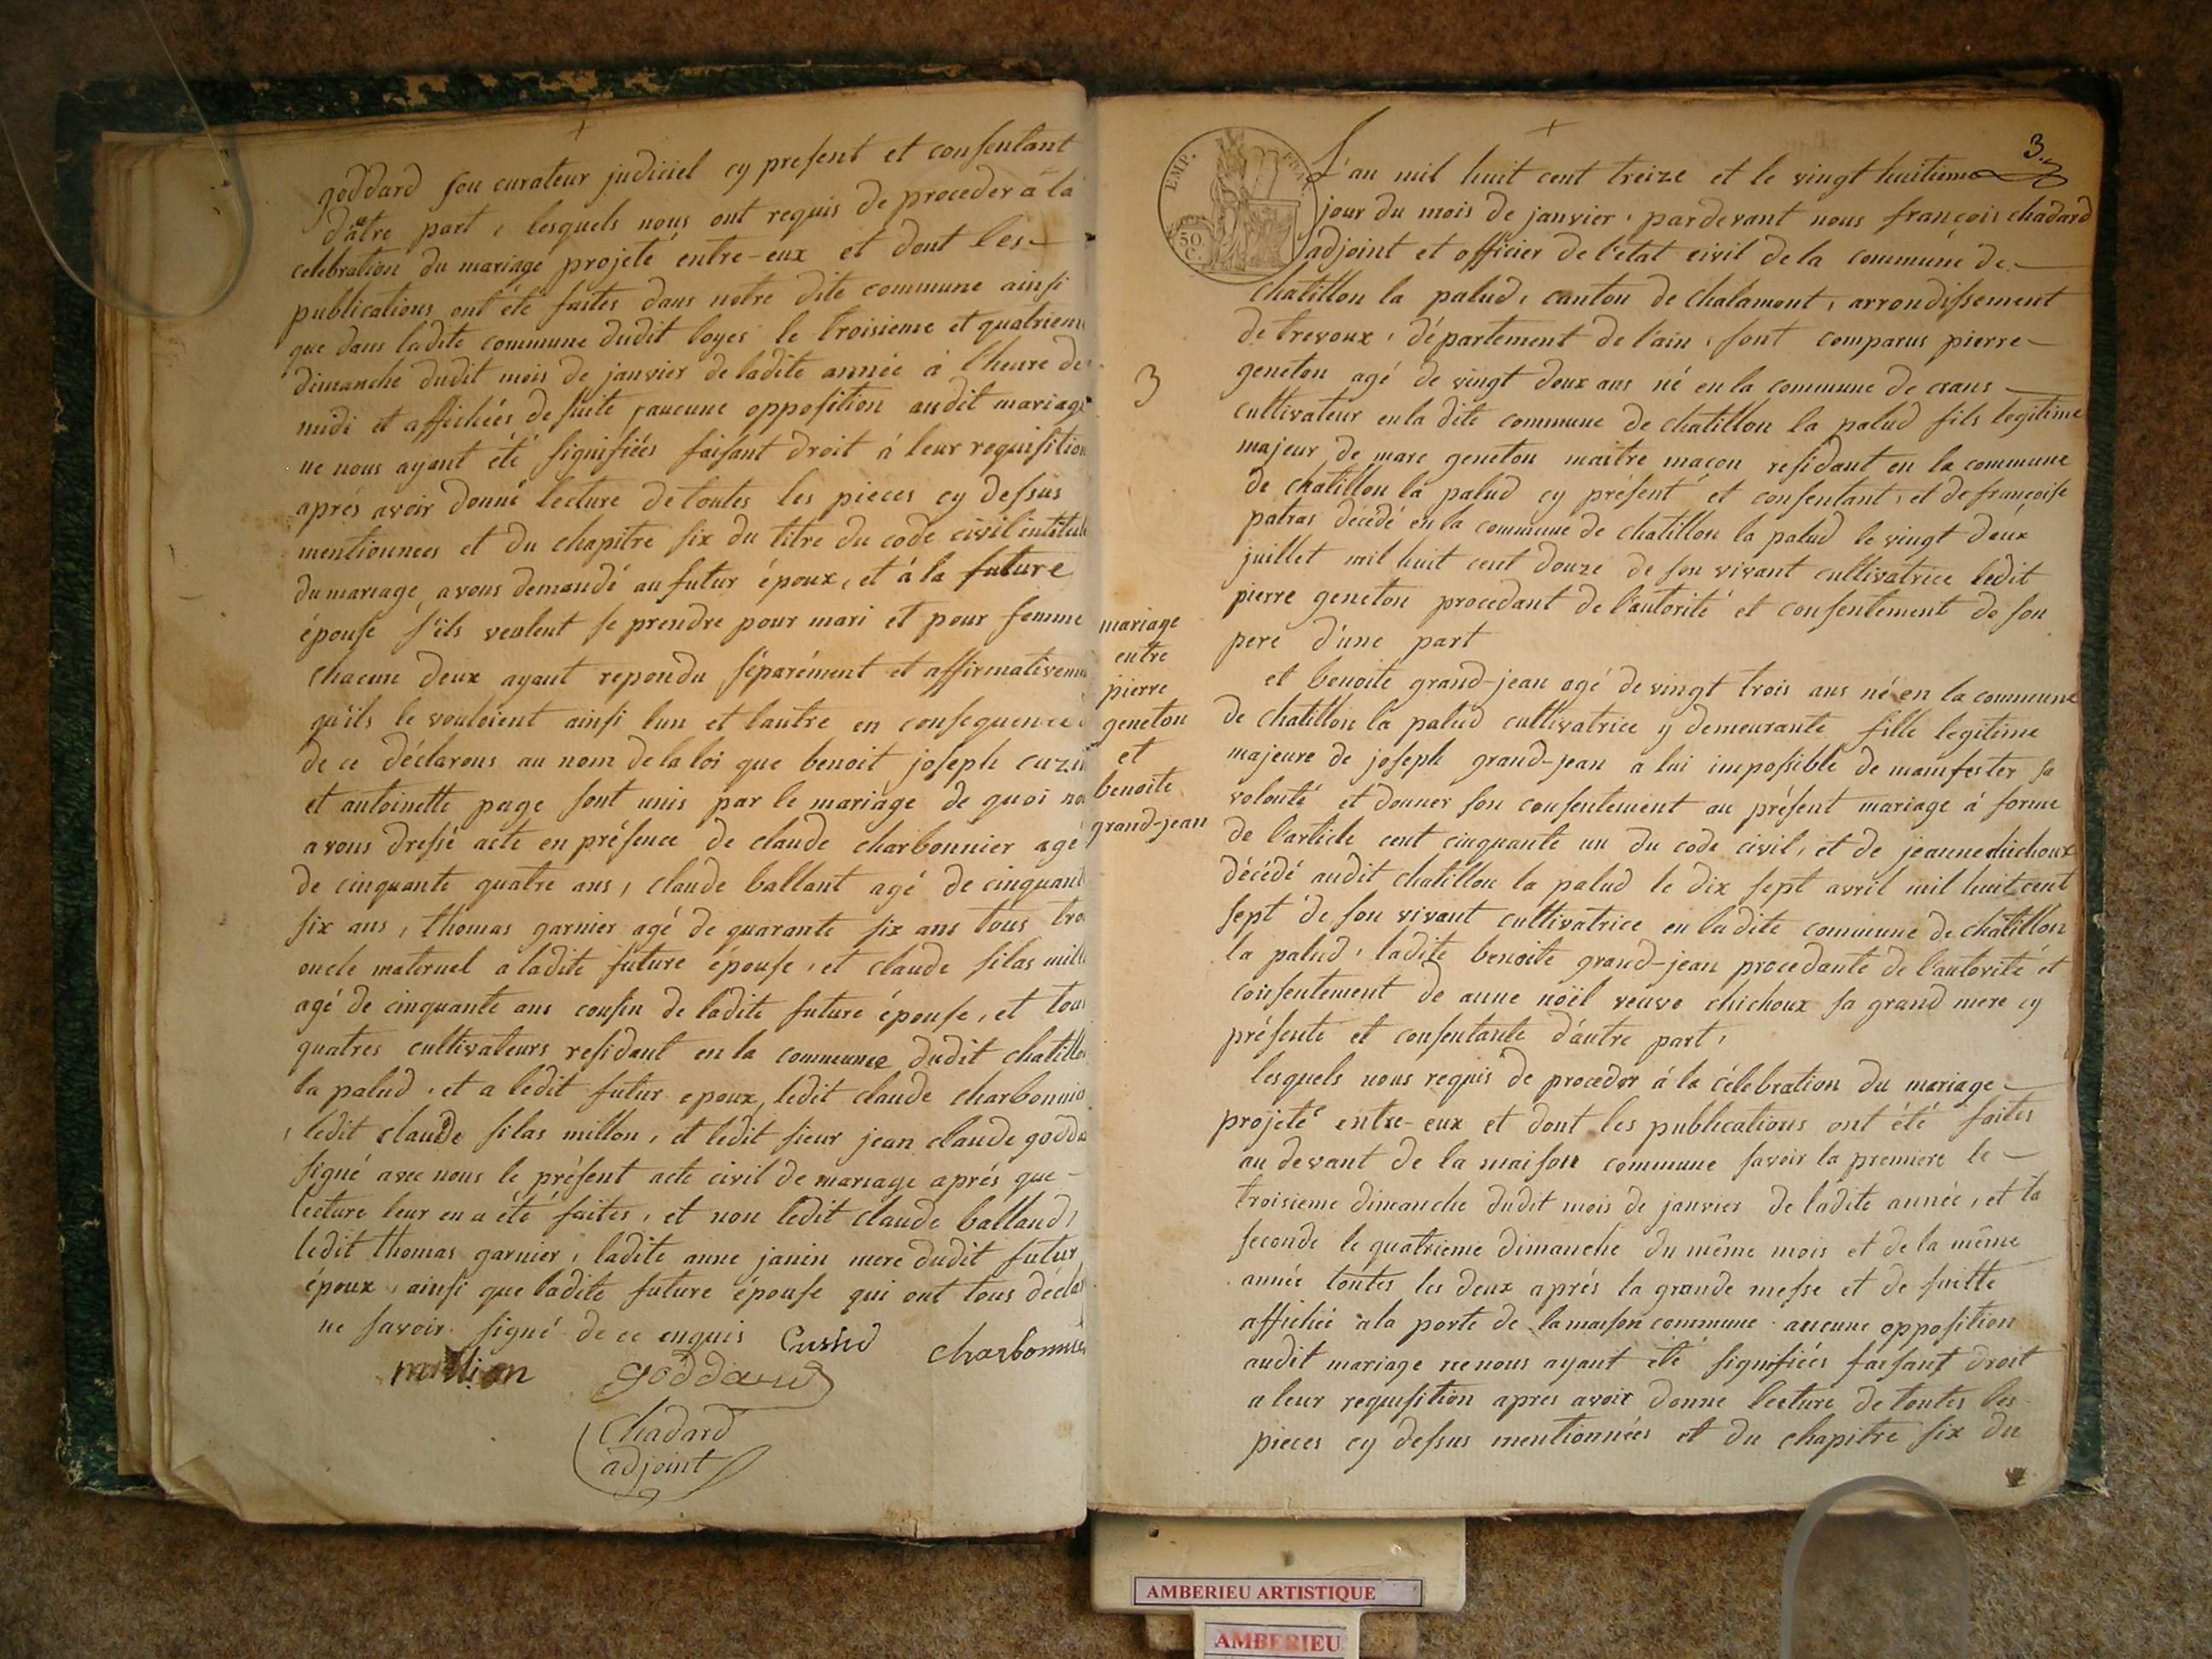 goddard son curateur judiciel cy present et consentant
d'atre part, lesquels nous ont requis de proceder à la
celebration du mariage projeté entre-eux et dont les
publications ont été faites dans notre dite commune ainsi
que dans ladite commune dudit loyes le troisieme et quatriem
dimanche dudit mois de janvier de ladite année à l'heure de
midi et affichées de suite, aucune opposition audit mariage
ne nous ayant été signifiées faisant droit à leur requisition
aprés avoir donné lecture de toutes les pieces cy dessus
mentionnees et du chapitre six du titre du code civil intitulé
du mariage, avons demandé au futur époux, et à la future
épouse s'ils veulent se prendre pour mari et pour femme
chacun deux ayant repondu séparément et affirmativeme
qu'ils le vouloient ainsi lun et lautre en consequence
de ce déclarons au nom de la loi que benoit joseph cuzin
et antoinette page sont unis par le mariage de quoi no
avons dressé acte en présence de claude charbonnier agé
de cinquante quatre ans, claude ballant agé de cinquant
six ans, thomas garnier agé de quarante six ans tous tro
oncle maternel a ladite future épouse, et claude silas mill
agé de cinquante ans cousin de ladite future épouse, et tou
quatres cultivateurs residant en la commune dudit chatillo
la palud, et a ledit futur epoux, ledit claude charbonnie
, ledit claude silas millon, et ledit sieur jean claude godda
signé avec nous le présent acte civil de mariage aprés que
lecture leur en a été faites, et non ledit claude balland,
ledit thomas garnier, ladite anne janin mere dudit futur
époux, ainsi que ladite future épouse qui ont tous déclar
ne savoir signé de ce enquis
charbonnier
million goddard
Chadard
adjoint
3.
EMP. FRA.
50.
C.
L'an mil huit cent treize et le vingt huitieme
jour du mois de janvier, pardevant nous françois chadard
adjoint et officier de l'etat civil de la commune de
chatillon la palud, canton de chalamont, arrondissement
de trevoux, département de l'ain, sont comparus pierre
geneton agé de vingt deux ans né en la commune de crans
cultivateur en la dite commune de chatillon la palud fils legitime
majeur de marc geneton maitre maçon residant en la commune
de chatillon la palud cy présent et consentant, et de françoise
patras décédé en la commune de chatillon la palud le vingt deux
juillet mil huit cent douze de son vivant cultivatrice ledit
pierre geneton procedant de l'autorité et consentement de son
pere d'une part
3
mariage
entre
pierre
geneton
et
benoite
grand-jean
et benoite grand-jean agé de vingt trois ans né en la commune
de chatillon la palud cultivatrice y demeurante fille legitime
majeure de joseph grand-jean a lui impossible de manifester sa
volonté et donner son consentement au présent mariage à forme
de l'article cent cinquante un du code civil, et de jeanne chichoux
décédé audit chatillon la palud le dix sept avril mil huit cent
sept de son vivant cultivatrice en ladite commune de chatillon
la palud, ladite benoite grand-jean procedante de l'autorité et
consentement de anne noël veuve chichoux sa grand mere cy
présente et consentante d'autre part,
lesquels nous requis de proceder à la célebration du mariage
projeté entre-eux et dont les publications ont été faites
au devant de la maison commune savoir la premiere le
troisieme dimanche dudit mois de janvier de ladite année, et la
seconde le quatrieme dimanche du même mois et de la même
année toutes les deux aprés la grande messe et de suitte
affichée a la porte de la maison commune aucune opposition
audit mariage ne nous ayant été signifiées faisant droit
a leur requisition apres avoir donne lecture de toutes les
pieces cy dessus mentionnées et du chapitre six du
AMBERIEU ARTISTIQUE
AMBERIEU